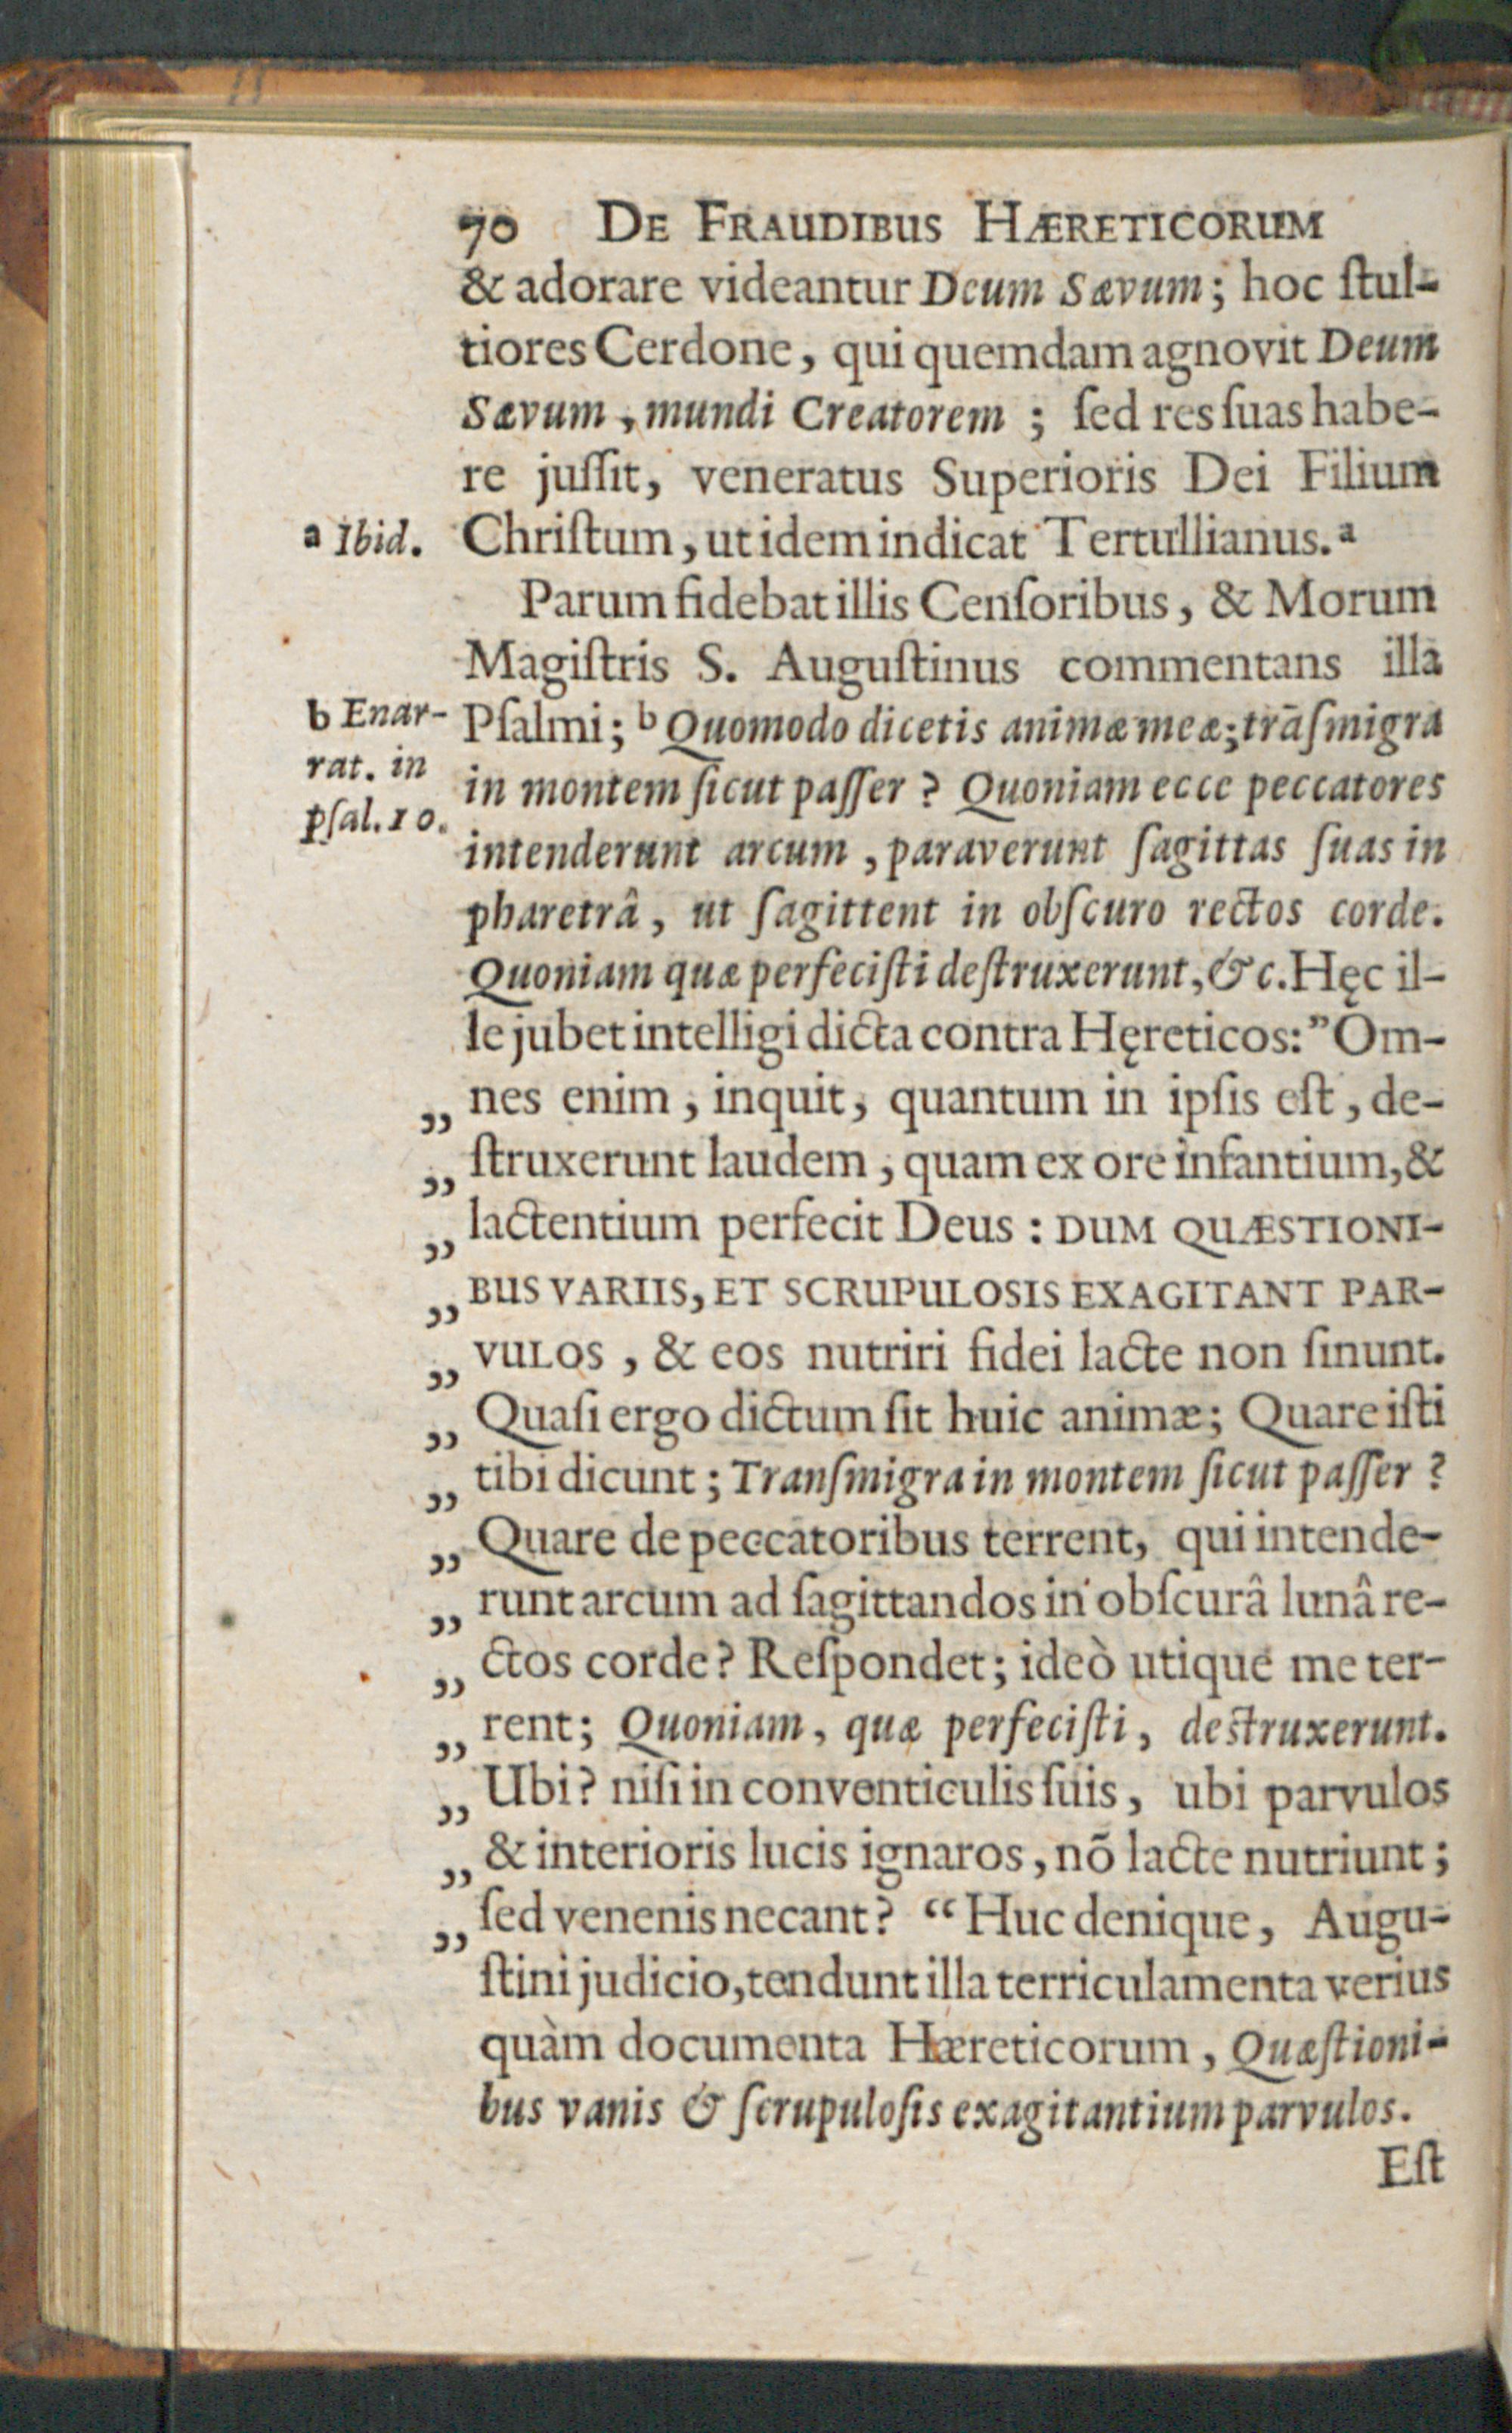 70 DE FRAUDIBUS HÆRETICORUM
& adorare videantur Deum Sævum; hoc ſtul-
tiores Cerdone, qui quemdam agnovit Deum
Sævum, mundi Creatorem ; ſed res ſuas habe-
re juſſit, veneratus Superioris Dei Filium
a Ibid. Chriſtum, ut idem indicat Tertullianus. a
Parum fidebat illis Cenſoribus, & Morum
Magiſtris S. Auguſtinus commentans illa
b Enar- Pſalmi; b Quomodo dicetis animæ meæ; trãſmigra
rat. in in montem ſicut paſſer ? Quoniam ecce peccatores
pſal. 10. intenderunt arcum, paraverunt ſagittas ſuas in
pharetrâ, ut ſagittent in obſcuro rectos corde.
Quoniam quæ perfeciſti deſtruxerunt, &c. Hęc il-
le jubet intelligi dicta contra Hęreticos: ”Om-
„ nes enim, inquit, quantum in ipſis eſt, de-
„ ſtruxerunt laudem, quam ex ore infantium, &
„ lactentium perfecit Deus : DUM QUÆSTIONI-
„ BUS VARIIS, ET SCRUPULOSIS EXAGITANT PAR-
„ VULOS, & eos nutriri fidei lacte non ſinunt.
„ Quaſi ergo dictum ſit huic animæ; Quare iſti
„ tibi dicunt ; Tranſmigra in montem ſicut paſſer ?
„ Quare de peccatoribus terrent, qui intende-
„ runt arcum ad ſagittandos in obſcurâ lunâ re-
„ ctos corde? Reſpondet; ideò utique me ter-
„ rent; Quoniam, quæ perfeciſti, deſtruxerunt.
„ Ubi? niſi in conventiculis ſuis, ubi parvulos
„ & interioris lucis ignaros, nõ lacte nutriunt ;
„ ſed venenis necant? “ Huc denique, Augu-
ſtini judicio, tendunt illa terriculamenta verius
quàm documenta Hæreticorum, Quæſtioni-
bus vanis & ſcrupuloſis exagitantium parvulos.
Eſt